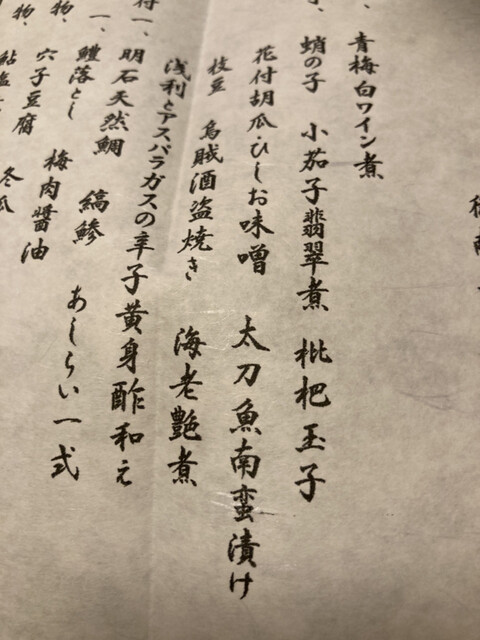 青梅白ワイン煮
蛸の子 小茄子翡翠煮 枇杷玉子
花付胡瓜・ひしお味噌 太刀魚南蛮漬け
枝豆 烏賊酒盗焼き 海老艶煮
浅利とアスパラガスの辛子黄身酢和え
付一、 明石天然鯛 縞鯵 あしらい一式
鱧落とし 梅肉醤油
物、 穴子豆腐 冬瓜
物、 鮎塩